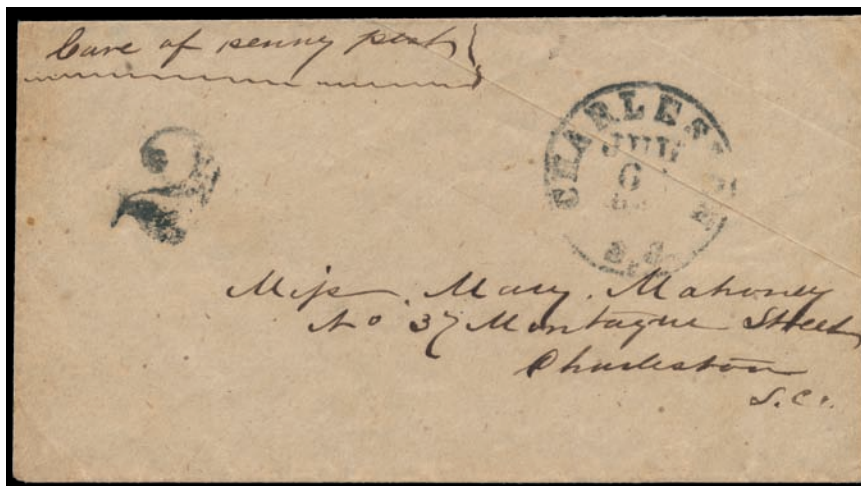 Care of penny post
2
CHARLESTON
JUL
6
S.C.
Miss. Mary. Mahoney
No 37 Montague Street
Charleston
S.C.